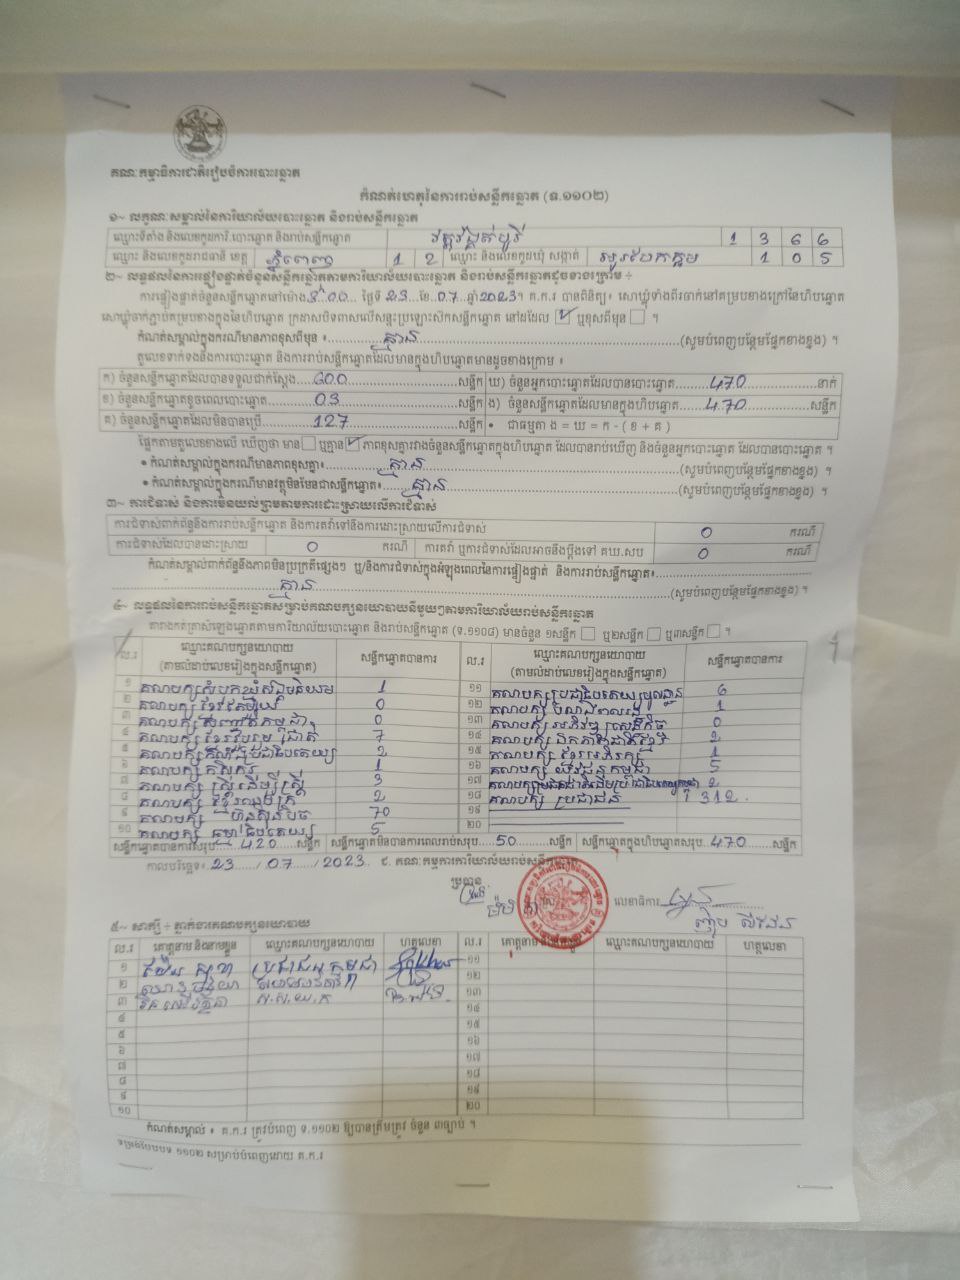 គណៈកម្មាធិការជាតិរៀបចំការបោះឆ្នោត
កំណត់ហេតុនៃការរាប់សន្លឹកឆ្នោត (ទ.១១០២)
១~ លក្ខណៈសម្គាល់នៃការិយាល័យបោះឆ្នោត និងរាប់សន្លឹកឆ្នោត
ឈ្មោះទីតាំង និងលេខកូដការិ.បោះឆ្នោត និងរាប់សន្លឹកឆ្នោត 1 3 6 6
ឈ្មោះ និងលេខកូដរាជធានី ខេត្ត ភ្នំពេញ 1 2 ឈ្មោះ និងលេខកូដឃុំ សង្កាត់ 1 0 5
២~ លទ្ធផលនៃការផ្ទៀងផ្ទាត់ចំនួនសន្លឹកឆ្នោតតាមការិយាល័យបោះឆ្នោត និងរាប់សន្លឹកឆ្នោតដូចខាងក្រោម ÷
ការផ្ទៀងផ្ទាត់ចំនួនសន្លឹកឆ្នោតនៅម៉ោង 3:00 ថ្ងៃទី 23 ខែ 07 ឆ្នាំ 2023។ គ.ក.រ បានពិនិត្យ៖ សោឃ្លុំទាំងពីរចាក់នៅគម្របខាងក្រៅនៃហិបឆ្នោត
សោឃ្លុំចាក់ភ្ជាប់គម្របខាងក្នុងនៃហិបឆ្នោត ក្រដាសបិទពាសលើសន្ទះប្រឡោះស៊កសន្លឹកឆ្នោត នៅដដែល ✓ ឬខុសពីមុន ។
កំណត់សម្គាល់ក្នុងករណីមានភាពខុសពីមុន ៖ គ្មាន (សូមបំពេញបន្ថែមផ្នែកខាងខ្នង) ។
តួលេខទាក់ទងនឹងការបោះឆ្នោត និងការរាប់សន្លឹកឆ្នោតដែលមានក្នុងហិបឆ្នោតមានដូចខាងក្រោម ៖
ក) ចំនួនសន្លឹកឆ្នោតដែលបានទទួលជាក់ស្តែង 600 សន្លឹក ឃ) ចំនួនអ្នកបោះឆ្នោតដែលបានបោះឆ្នោត 470 នាក់
ខ) ចំនួនសន្លឹកឆ្នោតខូចពេលបោះឆ្នោត 03 សន្លឹក ង) ចំនួនសន្លឹកឆ្នោតដែលមានក្នុងហិបឆ្នោត 470 សន្លឹក
គ) ចំនួនសន្លឹកឆ្នោតដែលមិនបានប្រើ 127 សន្លឹក • ជាធម្មតា ង = ឃ = ក - ( ខ + គ )
ផ្អែកតាមតួលេខខាងលើ ឃើញថា មាន ឬគ្មាន ✓ ភាពខុសគ្នារវាងចំនួនសន្លឹកឆ្នោតក្នុងហិបឆ្នោត ដែលបានរាប់ឃើញ និងចំនួនអ្នកបោះឆ្នោត ដែលបានបោះឆ្នោត ។
• កំណត់សម្គាល់ក្នុងករណីមានភាពខុសគ្នា៖ គ្មាន (សូមបំពេញបន្ថែមផ្នែកខាងខ្នង) ។
• កំណត់សម្គាល់ក្នុងករណីមានវត្ថុមិនមែនជាសន្លឹកឆ្នោត៖ គ្មាន (សូមបំពេញបន្ថែមផ្នែកខាងខ្នង) ។
៣~ ការជំទាស់ និងការមិនយល់ព្រមតាមការដោះស្រាយលើការជំទាស់
ការជំទាស់ពាក់ព័ន្ធនឹងការរាប់សន្លឹកឆ្នោត និងការតវ៉ាទៅនឹងការដោះស្រាយលើការជំទាស់ 0 ករណី
ការជំទាស់ដែលបានដោះស្រាយ 0 ករណី ការតវ៉ា ឬការជំទាស់ដែលអាចនឹងប្តឹងទៅ គឃ.សប 0 ករណី
កំណត់សម្គាល់ពាក់ព័ន្ធនឹងភាពមិនប្រក្រតីផ្សេងៗ ឬ/និងការជំទាស់ក្នុងអំឡុងពេលនៃការផ្ទៀងផ្ទាត់ និងការរាប់សន្លឹកឆ្នោត៖
គ្មាន (សូមបំពេញបន្ថែមផ្នែកខាងខ្នង) ។
៤~ លទ្ធផលនៃការរាប់សន្លឹកឆ្នោតសម្រាប់គណបក្សនយោបាយនីមួយៗតាមការិយាល័យរាប់សន្លឹកឆ្នោត
តារាងកត់ត្រាសំឡេងឆ្នោតតាមការិយាល័យបោះឆ្នោត និងរាប់សន្លឹកឆ្នោត (ទ.១១០៨) មានចំនួន ១សន្លឹក ឬ២សន្លឹក ឬ៣សន្លឹក ។
ល.រ ឈ្មោះគណបក្សនយោបាយ (តាមលំដាប់លេខរៀងក្នុងសន្លឹកឆ្នោត) សន្លឹកឆ្នោតបានការ ល.រ ឈ្មោះគណបក្សនយោបាយ (តាមលំដាប់លេខរៀងក្នុងសន្លឹកឆ្នោត) សន្លឹកឆ្នោតបានការ
១ គណបក្សសំបុកឃ្មុំសង្គមនិយម 1 ១១ គណបក្សប្រជាធិបតេយ្យមូលដ្ឋាន 6
២ គណបក្ស ខ្មែរ 0 ១២ គណបក្ស 1
៣ គណបក្ស កម្ពុជា 0 ១៣ គណបក្ស 0
៤ គណបក្ស ខ្មែររួបរួមជាតិ 7 ១៤ គណបក្ស ឯកភាពជាតិខ្មែរ 2
៥ គណបក្សភ្លើងប្រជាធិបតេយ្យ 2 ១៥ គណបក្ស ខ្មែរអភិរក្ស 1
៦ គណបក្ស កសិករ 1 ១៦ គណបក្ស យុវជនកម្ពុជា 5
៧ គណបក្ស ស្ត្រីដើម្បីស្ត្រី 3 ១៧ 2
៨ គណបក្ស 2 ១៨ គណបក្ស ប្រជាជន 312
៩ គណបក្ស ហ្វ៊ុនស៊ិនប៉ិច 70 ១៩
១០ គណបក្ស ធម្មាធិបតេយ្យ 5 ២០
សន្លឹកឆ្នោតបានការសរុប 420 សន្លឹក សន្លឹកឆ្នោតមិនបានការពេលរាប់សរុប 50 សន្លឹក សន្លឹកឆ្នោតក្នុងហិបឆ្នោតសរុប 470 សន្លឹក
កាលបរិច្ឆេទ៖ 23 / 07 / 2023 ជ. គណៈកម្មការការិយាល័យរាប់សន្លឹកឆ្នោត
ប្រធាន លេខាធិការ
៥~ សាក្សី ÷ ភ្នាក់ងារគណបក្សនយោបាយ
ល.រ គោត្តនាម និងនាមខ្លួន ឈ្មោះគណបក្សនយោបាយ ហត្ថលេខា ល.រ គោត្តនាម និងនាមខ្លួន ឈ្មោះគណបក្សនយោបាយ ហត្ថលេខា
១ ប្រជាជនកម្ពុជា ១១
២ ១២
៣ ១៣
៤ ១៤
៥ ១៥
៦ ១៦
៧ ១៧
៨ ១៨
៩ ១៩
១០ ២០
កំណត់សម្គាល់ ៖ គ.ក.រ ត្រូវបំពេញ ទ.១១០២ ឱ្យបានត្រឹមត្រូវ ចំនួន ៣ច្បាប់ ។
ទម្រង់បែបបទ ១១០២ សម្រាប់បំពេញដោយ គ.ក.រ